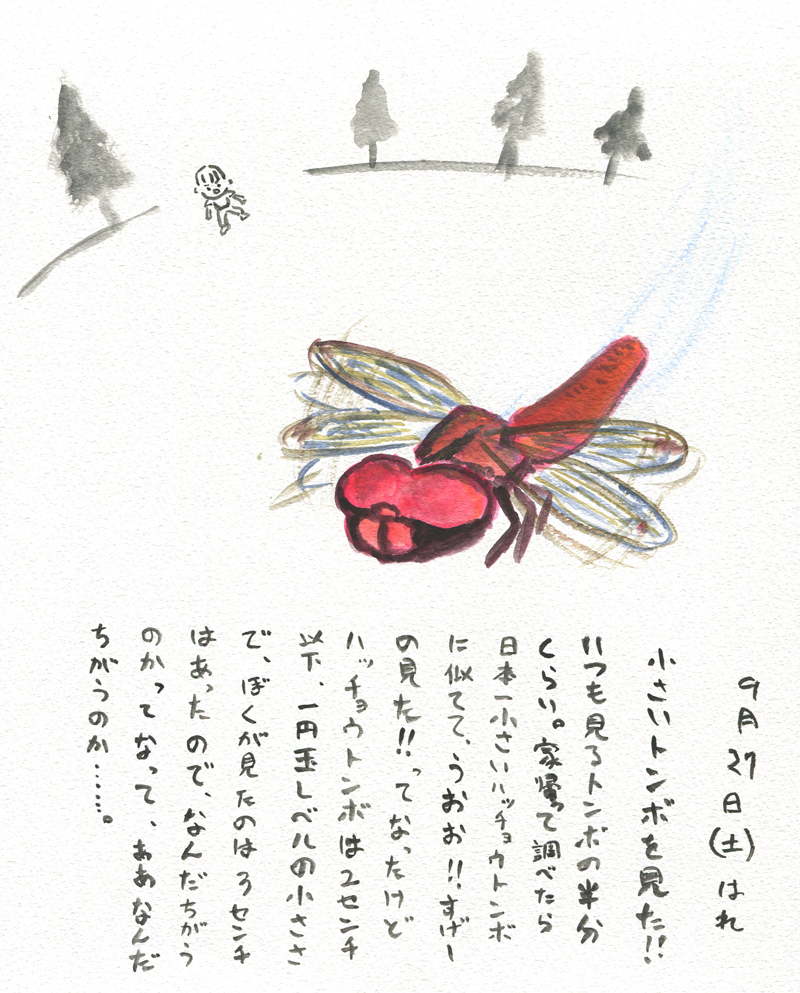 9月27日(土)はれ
小さいトンボを見た!!
いつも見るトンボの半分
くらい。家帰って調べたら
日本一小さいハッチョウトンボ
に似てて、うおお!!すげー
の見た!!ってなったけど
ハッチョウトンボは2センチ
以下、一円玉レベルの小ささ
で、ぼくが見たのは3センチ
はあったので、なんだちがう
のかってなって、ああなんだ
ちがうのか……。